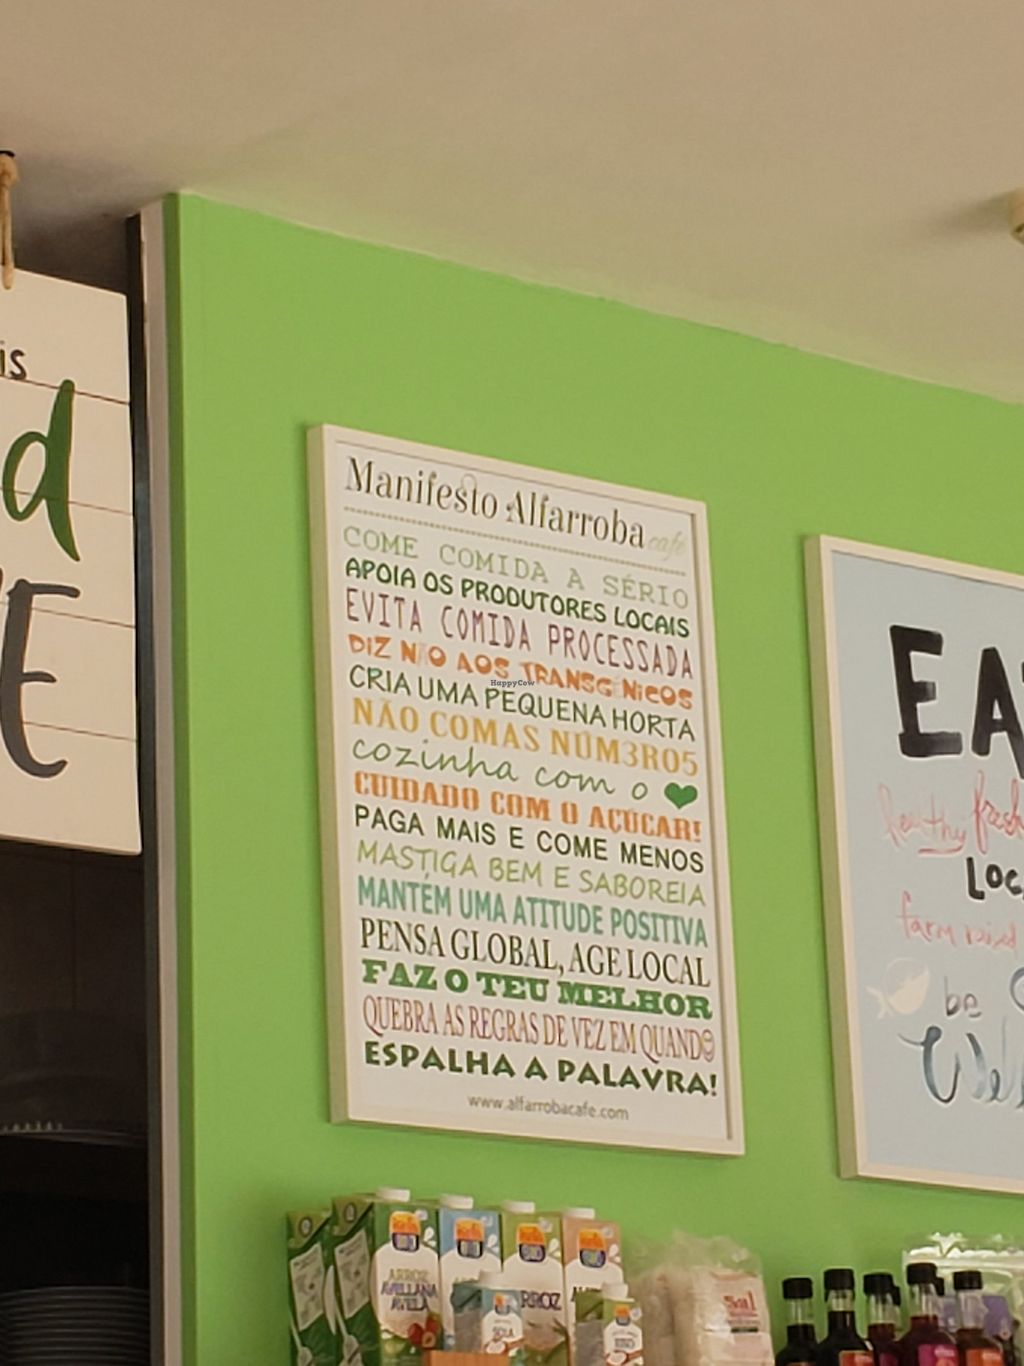 is
d
E
Manifesto Alfarroba café
COME COMIDA A SÉRIO
APOIA OS PRODUTORES LOCAIS
EVITA COMIDA PROCESSADA
DIZ NÃO AOS TRANSGÉNICOS
CRIA UMA PEQUENA HORTA
NÃO COMAS NÚM3RO5
cozinha com o
CUIDADO COM O AÇÚCAR!
PAGA MAIS E COME MENOS
MASTIGA BEM E SABOREIA
MANTÉM UMA ATITUDE POSITIVA
PENSA GLOBAL, AGE LOCAL
FAZ O TEU MELHOR
QUEBRA AS REGRAS DE VEZ EM QUANDO
ESPALHA A PALAVRA!
www.alfarrobacafe.com
HappyCow
EA
healthy fresh
LOC
farm raised
be
Wel
ARROZ
AVELLANA
AVELÃ
ARROZ
SOJA
Sal